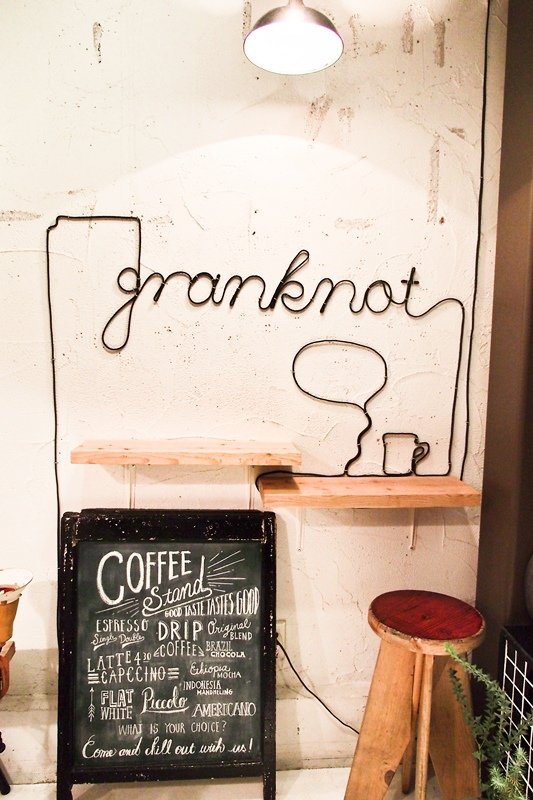 granknot
COFFEE
Stand
GOOD TASTE TASTES GOOD
ESPRESSO
Single Double
DRIP
COFFEE
Original
BLEND
BRAZIL
CHOCOLA
LATTE 430
CAPCCINO
Ethiopia
MOCHA
INDONESIA
MANDHELING
FLAT
WHITE
Piccolo
AMERICANO
WHAT IS YOUR CHOICE?
Come and chill out with us!